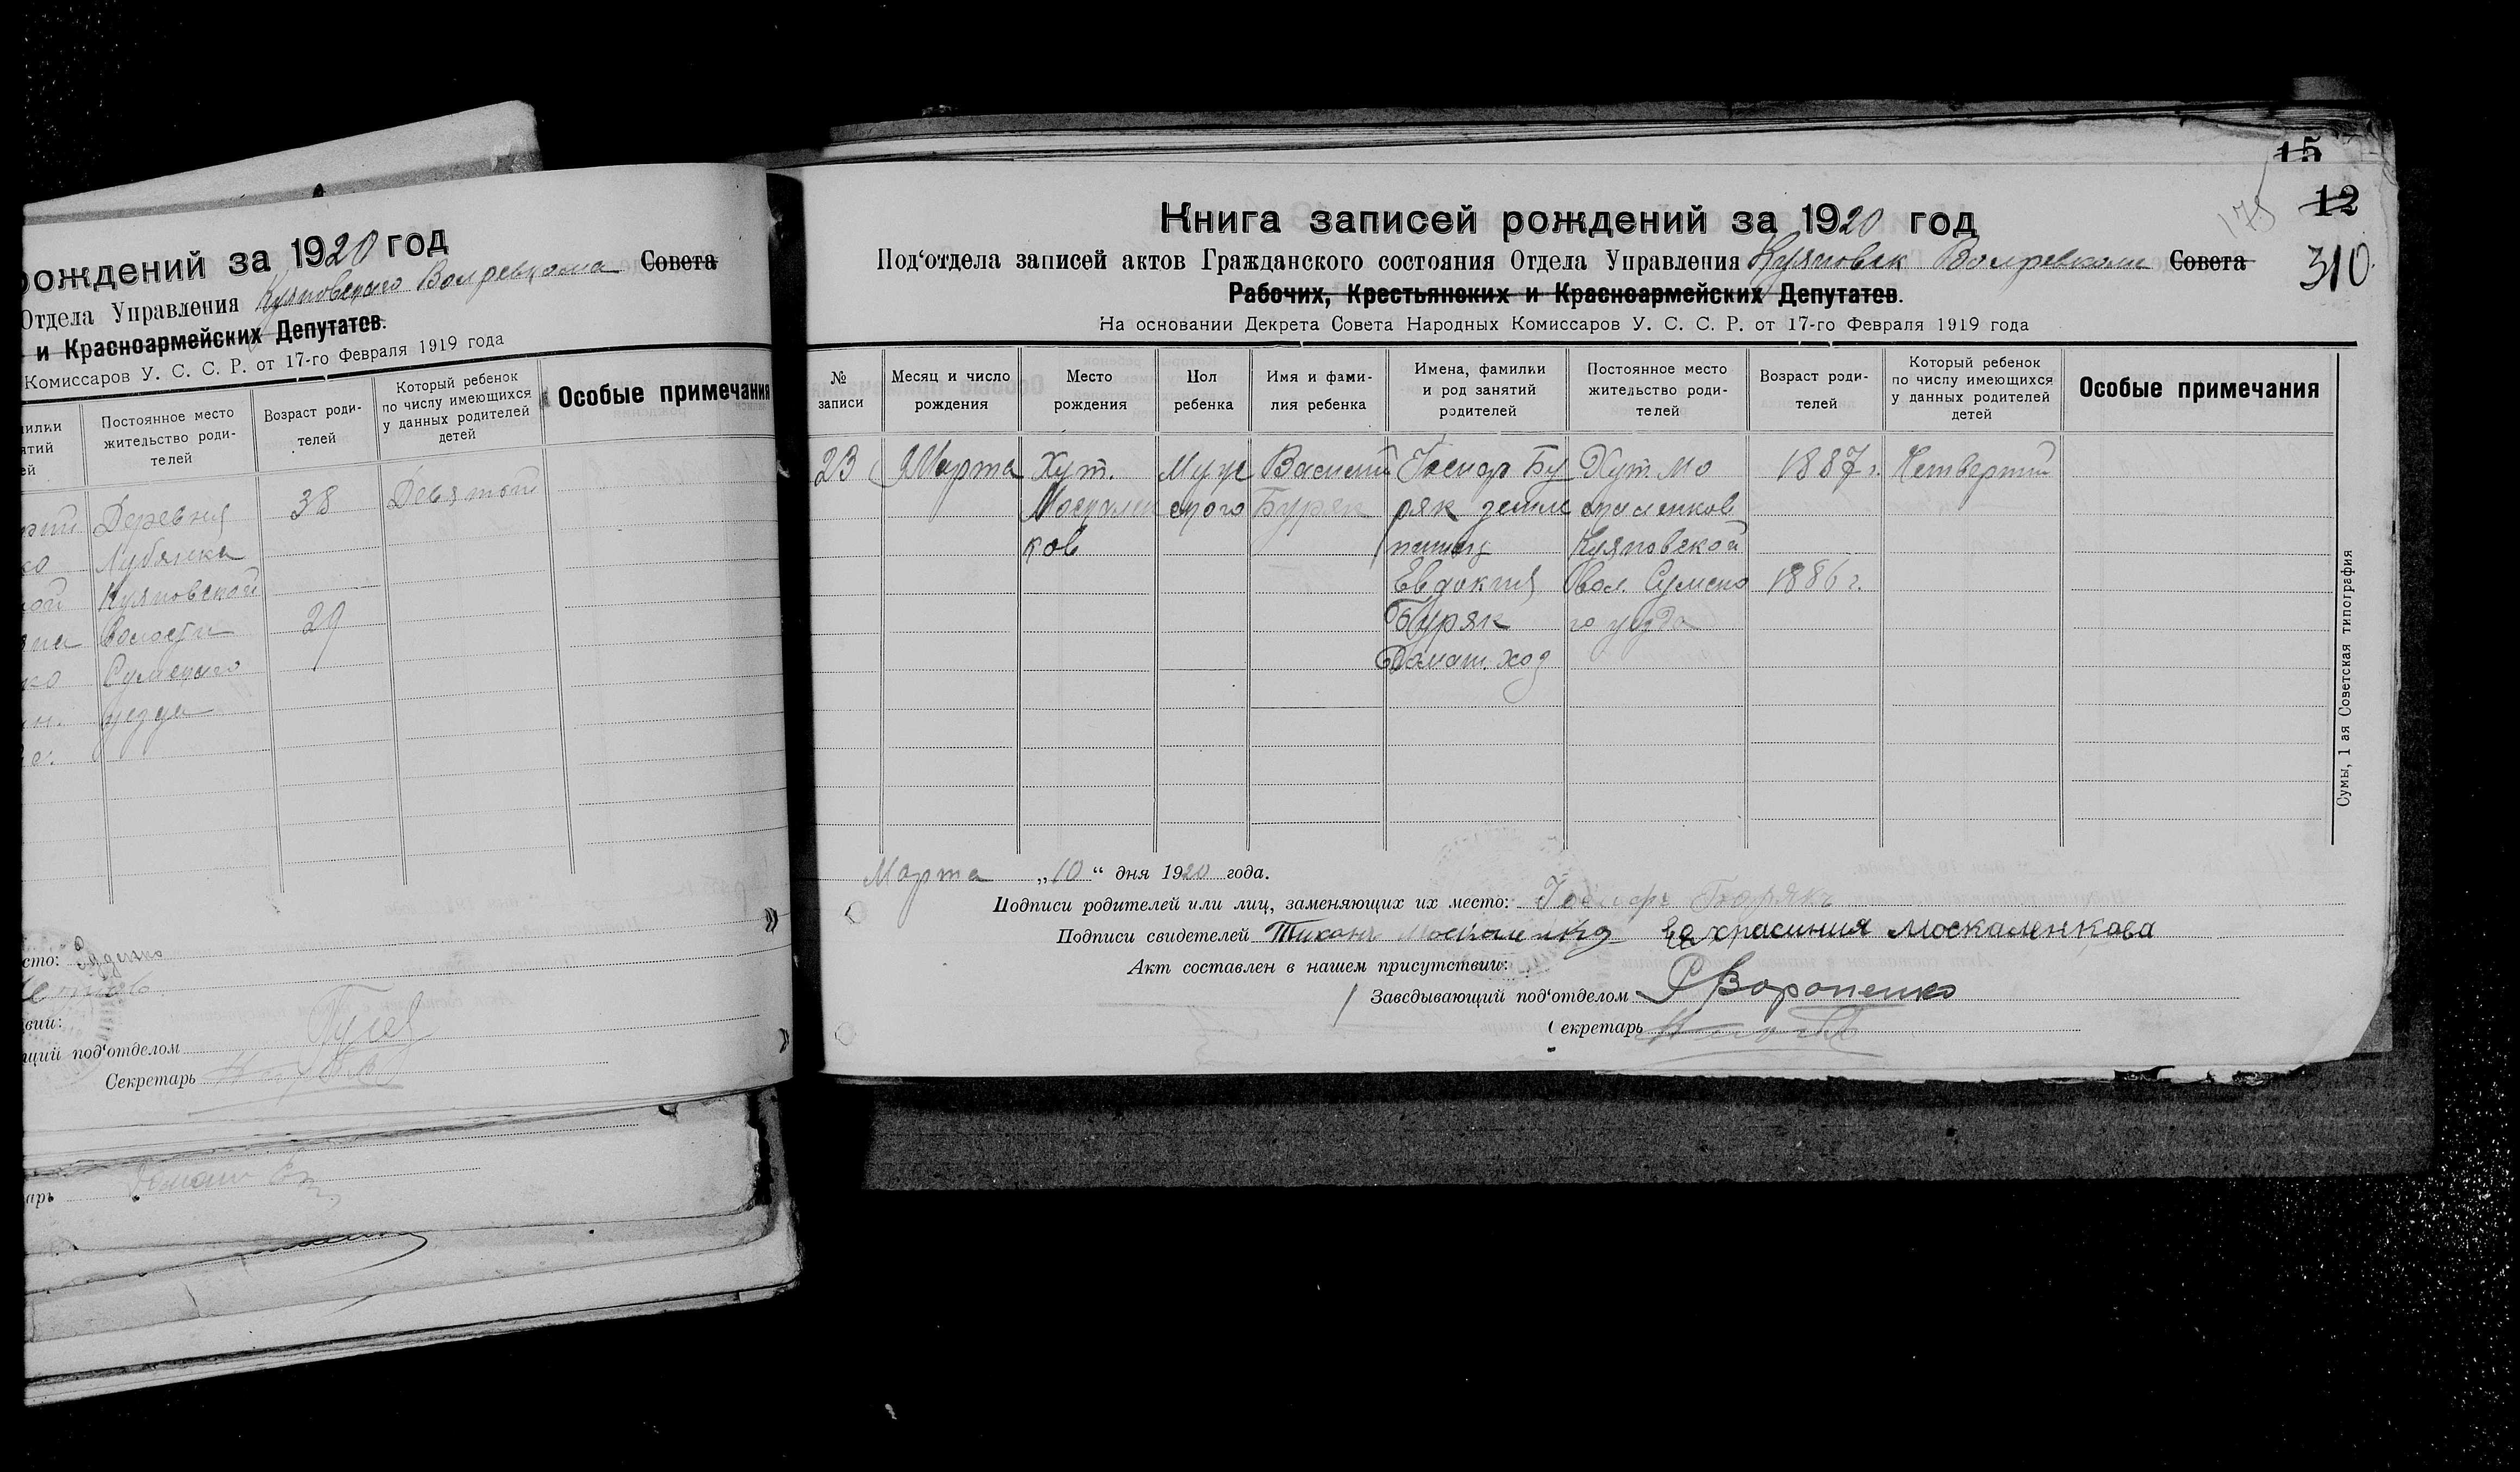 рождений за 1920 год
Отдела Управления Куяновского Волревкома Совета
и Красноармейских Депутатов.
Комиссаров У. С. С. Р. от 17-го Февраля 1919 года
Постоянное место жительство родителей
Возраст родителей
Который ребенок по числу имеющихся у данных родителей детей
Особые примечания
Деревня
38
Девятый
Куяновской
29
волости
Сумского
уезда
под‘отделом
Секретарь
15
12
310
175
Книга записей рождений за 1920 год
Под‘отдела записей актов Гражданского состояния Отдела Управления Куяновск Волревкома Совета
Рабочих, Крестьянских и Красноармейских Депутатов.
На основании Декрета Совета Народных Комиссаров У. С. С. Р. от 17-го Февраля 1919 года
№ записи
Месяц и число рождения
Место рождения
Пол ребенка
Имя и фамилия ребенка
Имена, фамилии и род занятий родителей
Постоянное место жительство родителей
Возраст родителей
Который ребенок по числу имеющихся у данных родителей детей
Особые примечания
23
Марта
Хут.
Москален
ков
Муж
ского
Василий
Буряк
Бу
ряк земле
пашец
Евдокия
Буряк
Домаш. хоз
Хут. Мо
скаленков
Куяновской
вол. Сумско
го уезда
1887 г.
1886 г.
Четвертий
Марта „10“ дня 1920 года.
Подписи родителей или лиц, заменяющих их место: Буряк
Подписи свидетелей Тихон Москаленко Москаленкова
Акт составлен в нашем присутствии:
Заведывающий под‘отделом Вороненко
Секретарь
Сумы, 1 ая Советская типография